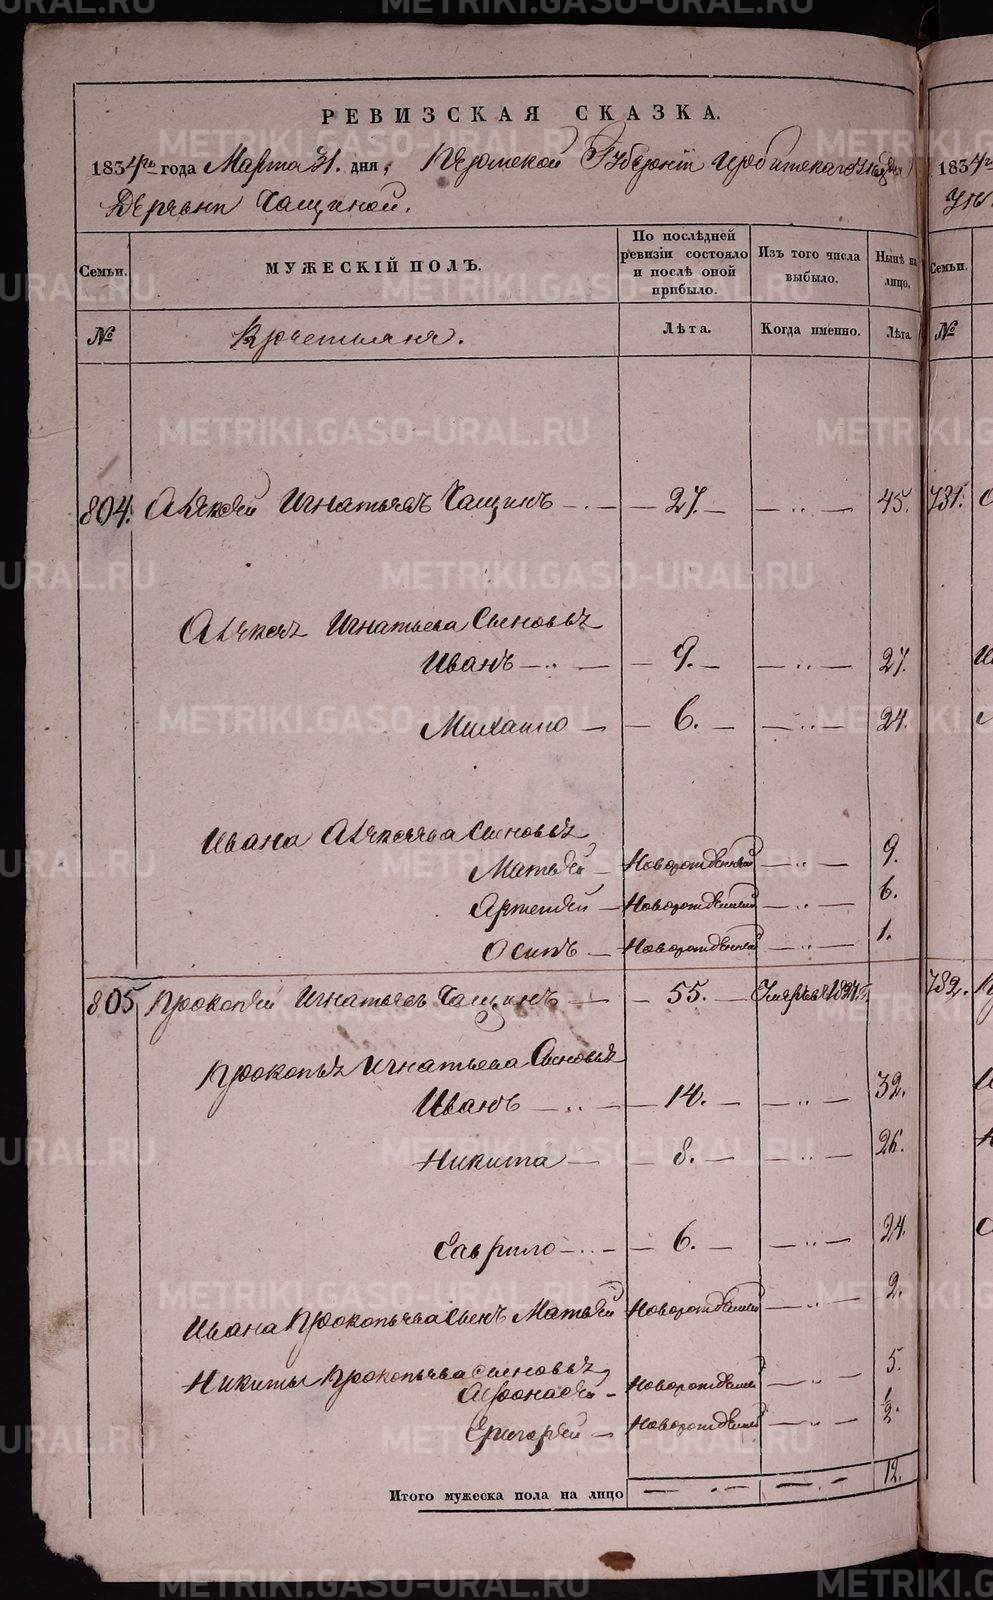 РЕВИЗСКАЯ СКАЗКА.
1834го года Марта 31. дня, Пермской Губернiи Ирбитскаго уезда
Деревни Чащиной.
Семьи. МУЖЕСКІЙ ПОЛЪ. По послѣдней ревизіи состояло и послѣ оной прибыло. Изъ того числа выбыло. Нынѣ на лицо.
№ Крестьяня. Лѣта. Когда именно. Лѣта.
804. Алѣксѣй Игнатьевъ Чащинъ 27. 45.
Алѣксѣя Игнатьева Сыновья
Иванъ 9. 27.
Михаило 6. 24.
Ивана Алѣксѣева Сыновья
Матвѣй Новорожденный 9.
Артемѣй Новорожденный 6.
Осипъ Новорожденный 1.
805 Прокопѣй Игнатьевъ Чащинъ 55. Умре въ 1831.
Прокопья Игнатьева Сыновья
Иванъ 14. 32.
Никита 8. 26.
Гаврило 6. 24.
Ивана Прокопьева Сынъ Матвѣй Новорожденный 2.
Никиты Прокопьева сыновья
Афонасѣй Новорожденный 5.
Григорѣй Новорожденный ½.
Итого мужеска пола на лицо 12.
1834го
Семьи.
№
731.
732.
METRIKI.GASO-URAL.RU